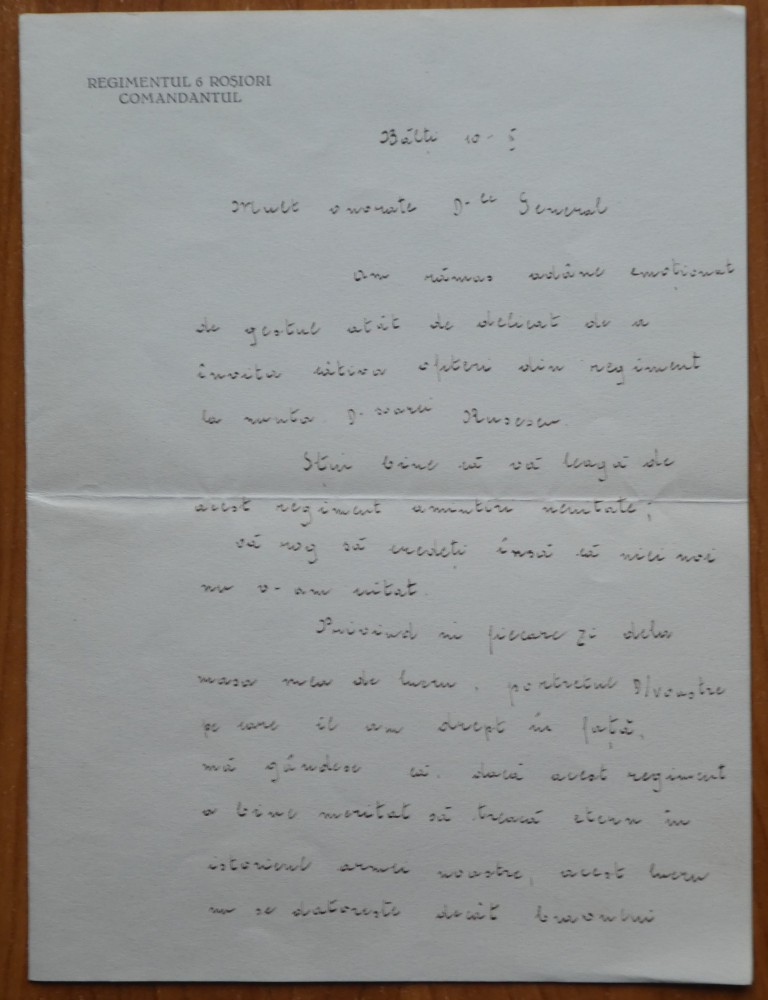 REGIMENTUL 6 ROȘIORI
COMANDANTUL
Bălți 10 - 5
Mult onorate D-le General
Am rămas adânc emoționat
de gestul atât de delicat de a
învita câtiva ofițeri din regiment
la nunta D-șoarei Rusescu.
Știu bine că vă leagă de
acest regiment amintiri neuitate;
vă rog să credeți însă că nici noi
nu v-am uitat.
Privind în fiecare zi dela
masa mea de lucru, portretul D/voastre
pe care îl am drept în față,
mă gândesc că, dacă acest regiment
a bine meritat să treacă etern în
istoricul armei noastre, acest lucru
nu se datorește decât bravului